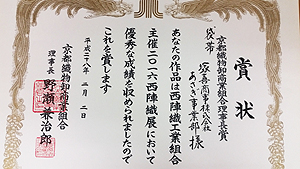 賞状
京都織物卸商業組合理事長賞
袋帯
塚喜商事株式会社
あさぎ事業部様
あなたの作品は西陣織工業組合
主催二〇一六西陣織展において
優秀な成績を収められましたので
これを賞します
平成二十八年 二月 二日
京都織物卸商業組合
理事長 野瀬兼治郎